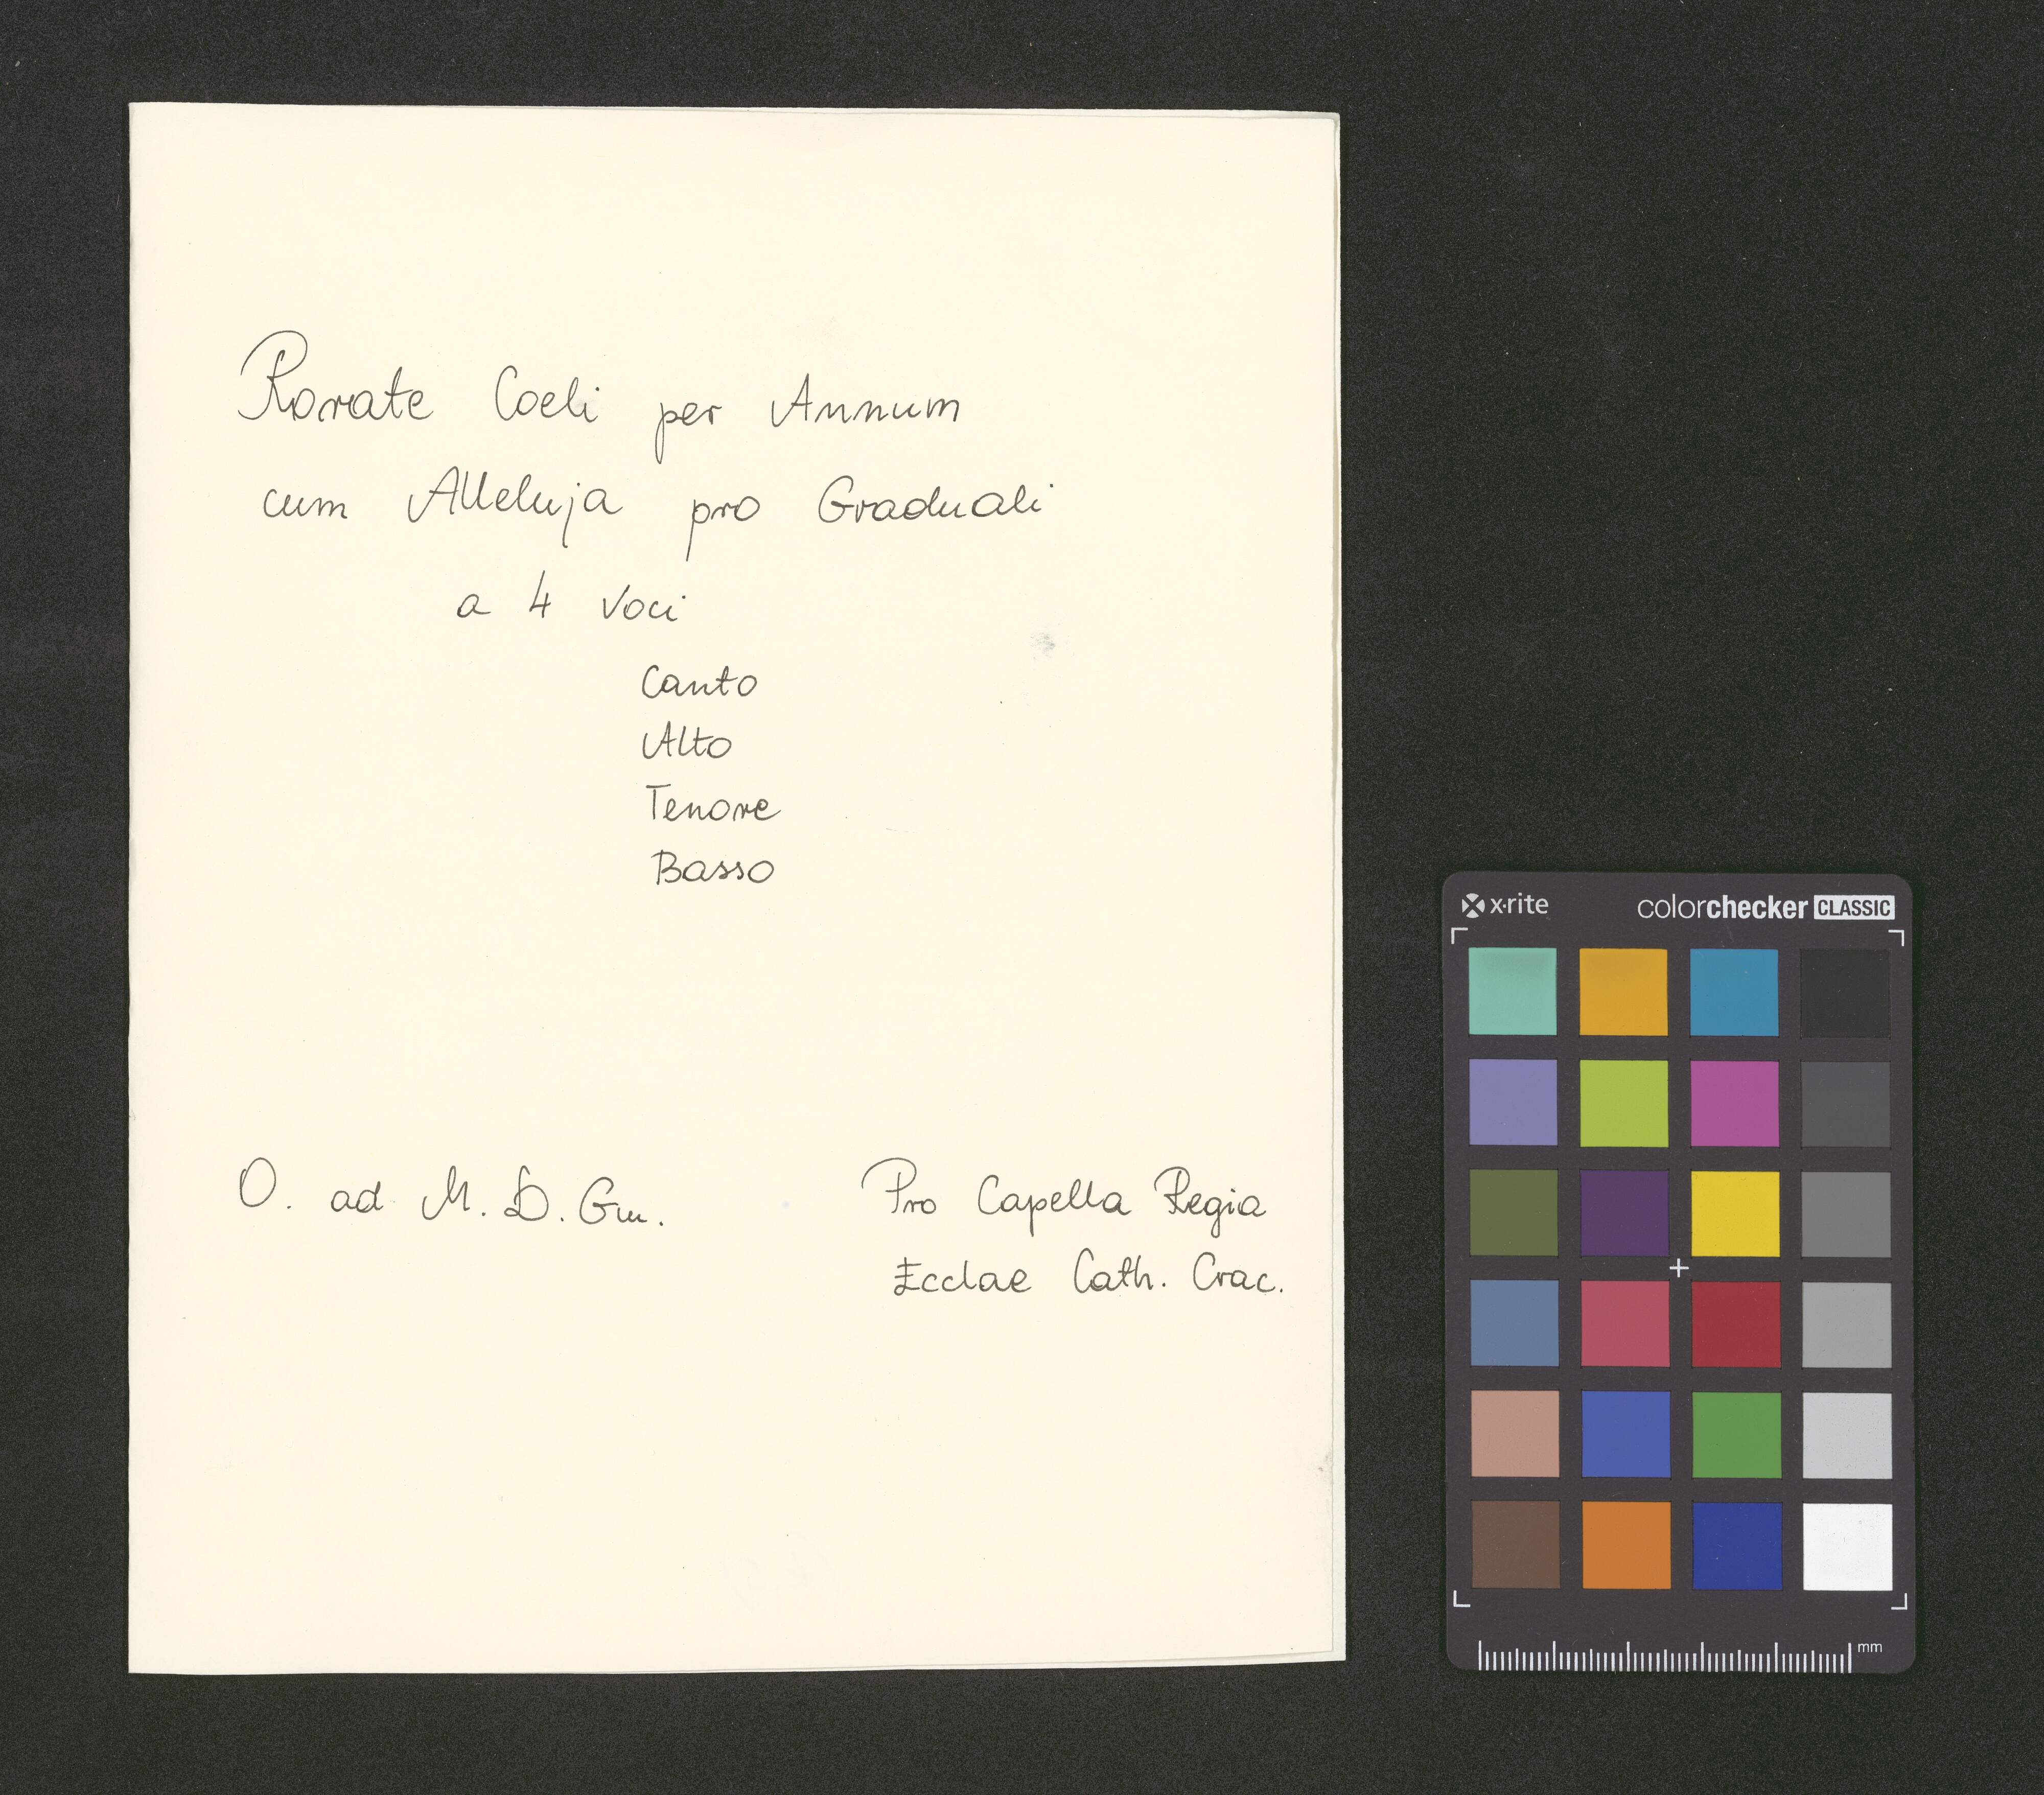 Rorate Coeli per Annum
cum Alleluja pro Graduali
a 4 voci
Canto
Alto
Tenore
Basso
O. ad M. D. Gm.
Pro Capella Regia
Ecclae Cath. Crac.
x·rite
colorchecker CLASSIC
mm